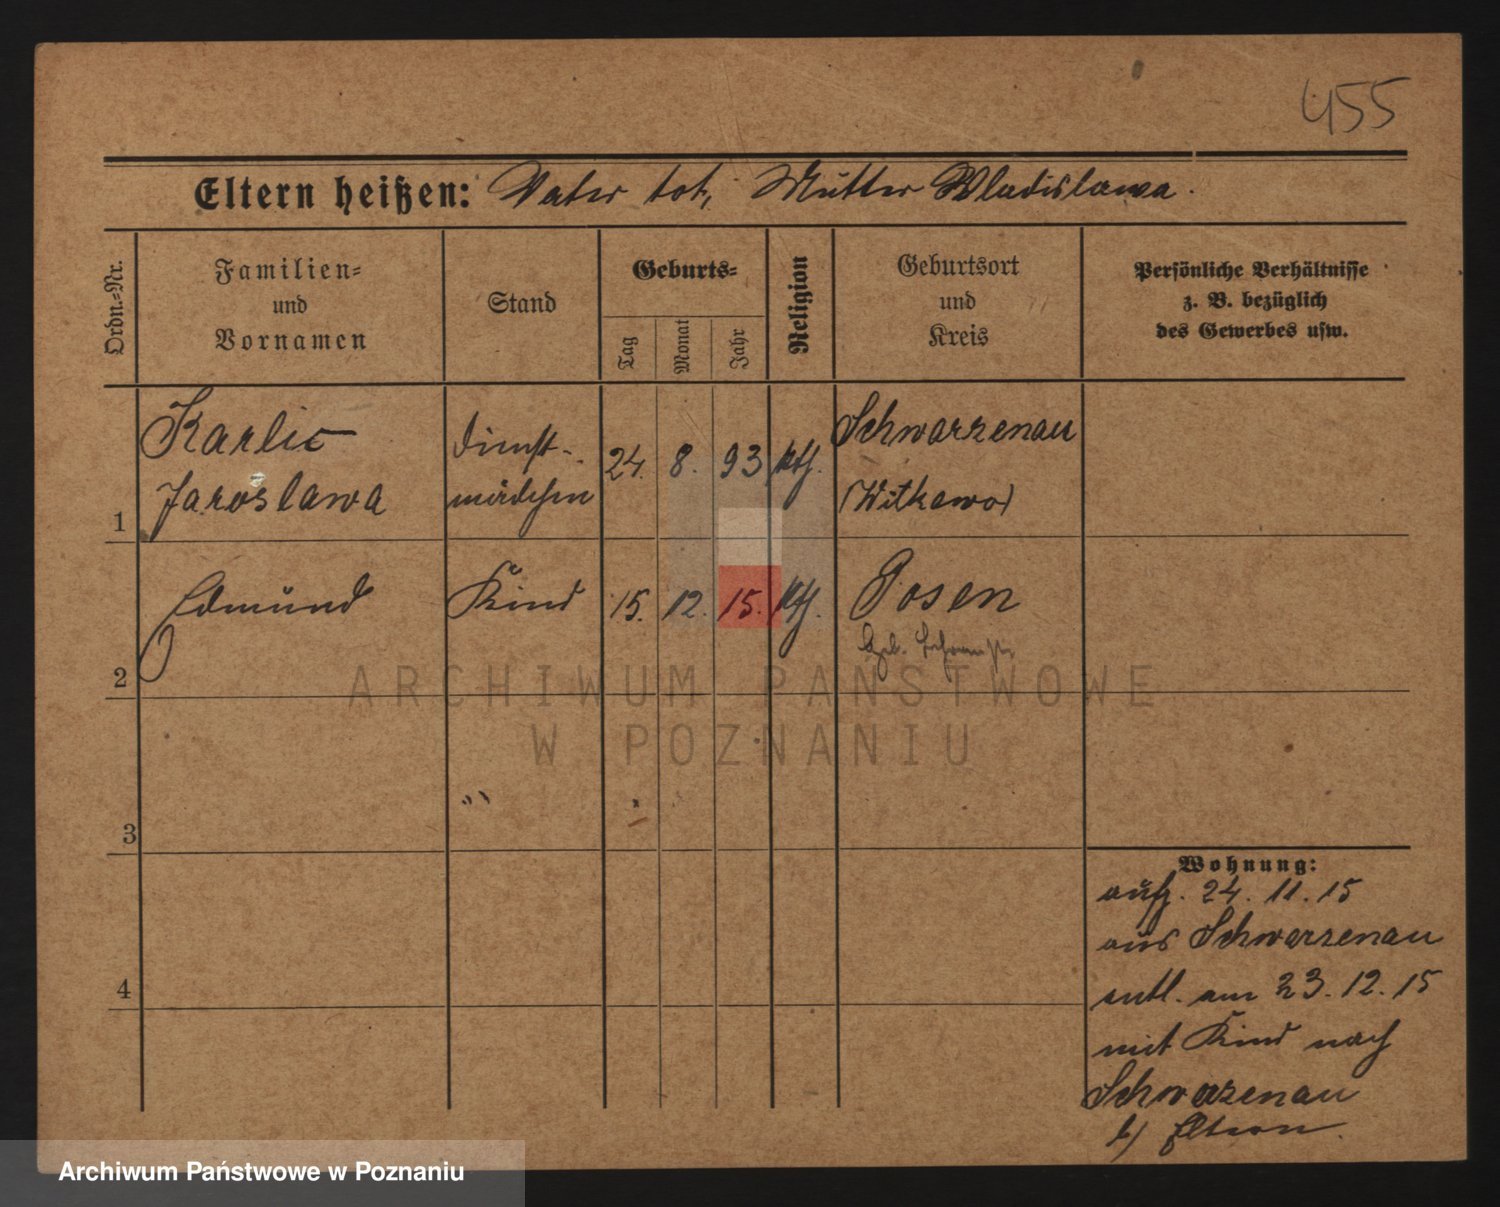 455
Eltern heißen: Vater tot, Mutter Wladislawa.
Ordn.=Nr.
Familien=
und
Vornamen
Stand
Geburts=
Tag
Monat
Jahr
Religion
Geburtsort
und
Kreis
Persönliche Verhältnisse
z. B. bezüglich
des Gewerbes usw.
Karlic Dienst- 24. 8. 93 kth. Schwarzenau
1 Jaroslawa mädchen (Witkowo)
Edmund Kind 15. 12. 15. kth. Posen
Geb.
2
ARCHIWUM PAŃSTWOWE
W POZNANIU
3
Wohnung:
aufg. 24. 11. 15
aus Schwarzenau
4 entl. am 23. 12. 15
mit Kind nach
Schwarzenau
b/ Eltern.
Archiwum Państwowe w Poznaniu